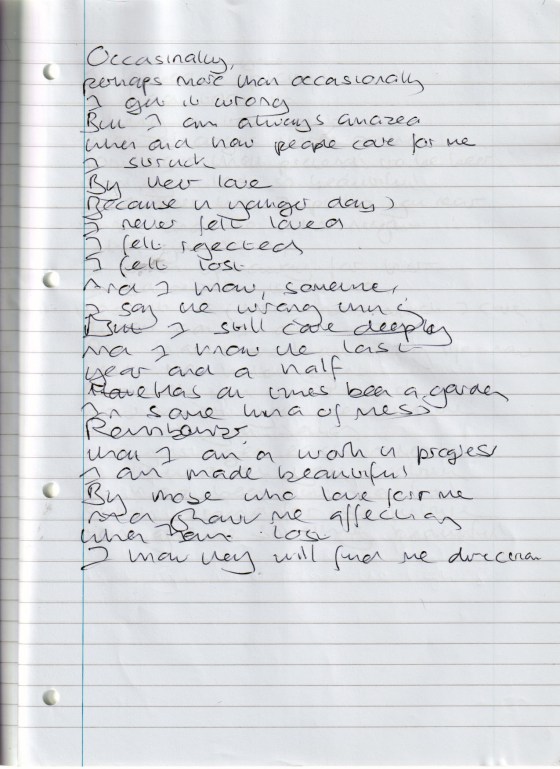 Occasinally,
perhaps more than occasionally
I get it wrong
But I am always amazed
when and how people care for me
I struck
By their love
Because in younger days
I never felt loved
I felt rejected
I felt lost
And I know, sometime,
I say the wrong thing
But I still care deeply
And I know the last
year and a half
Have Has at times been a garden
In some kind of mess
Remember,
that I am a work in progress
I am made beautiful
By those who love for me
And show me affection
when I am lost
I know they will find me direction